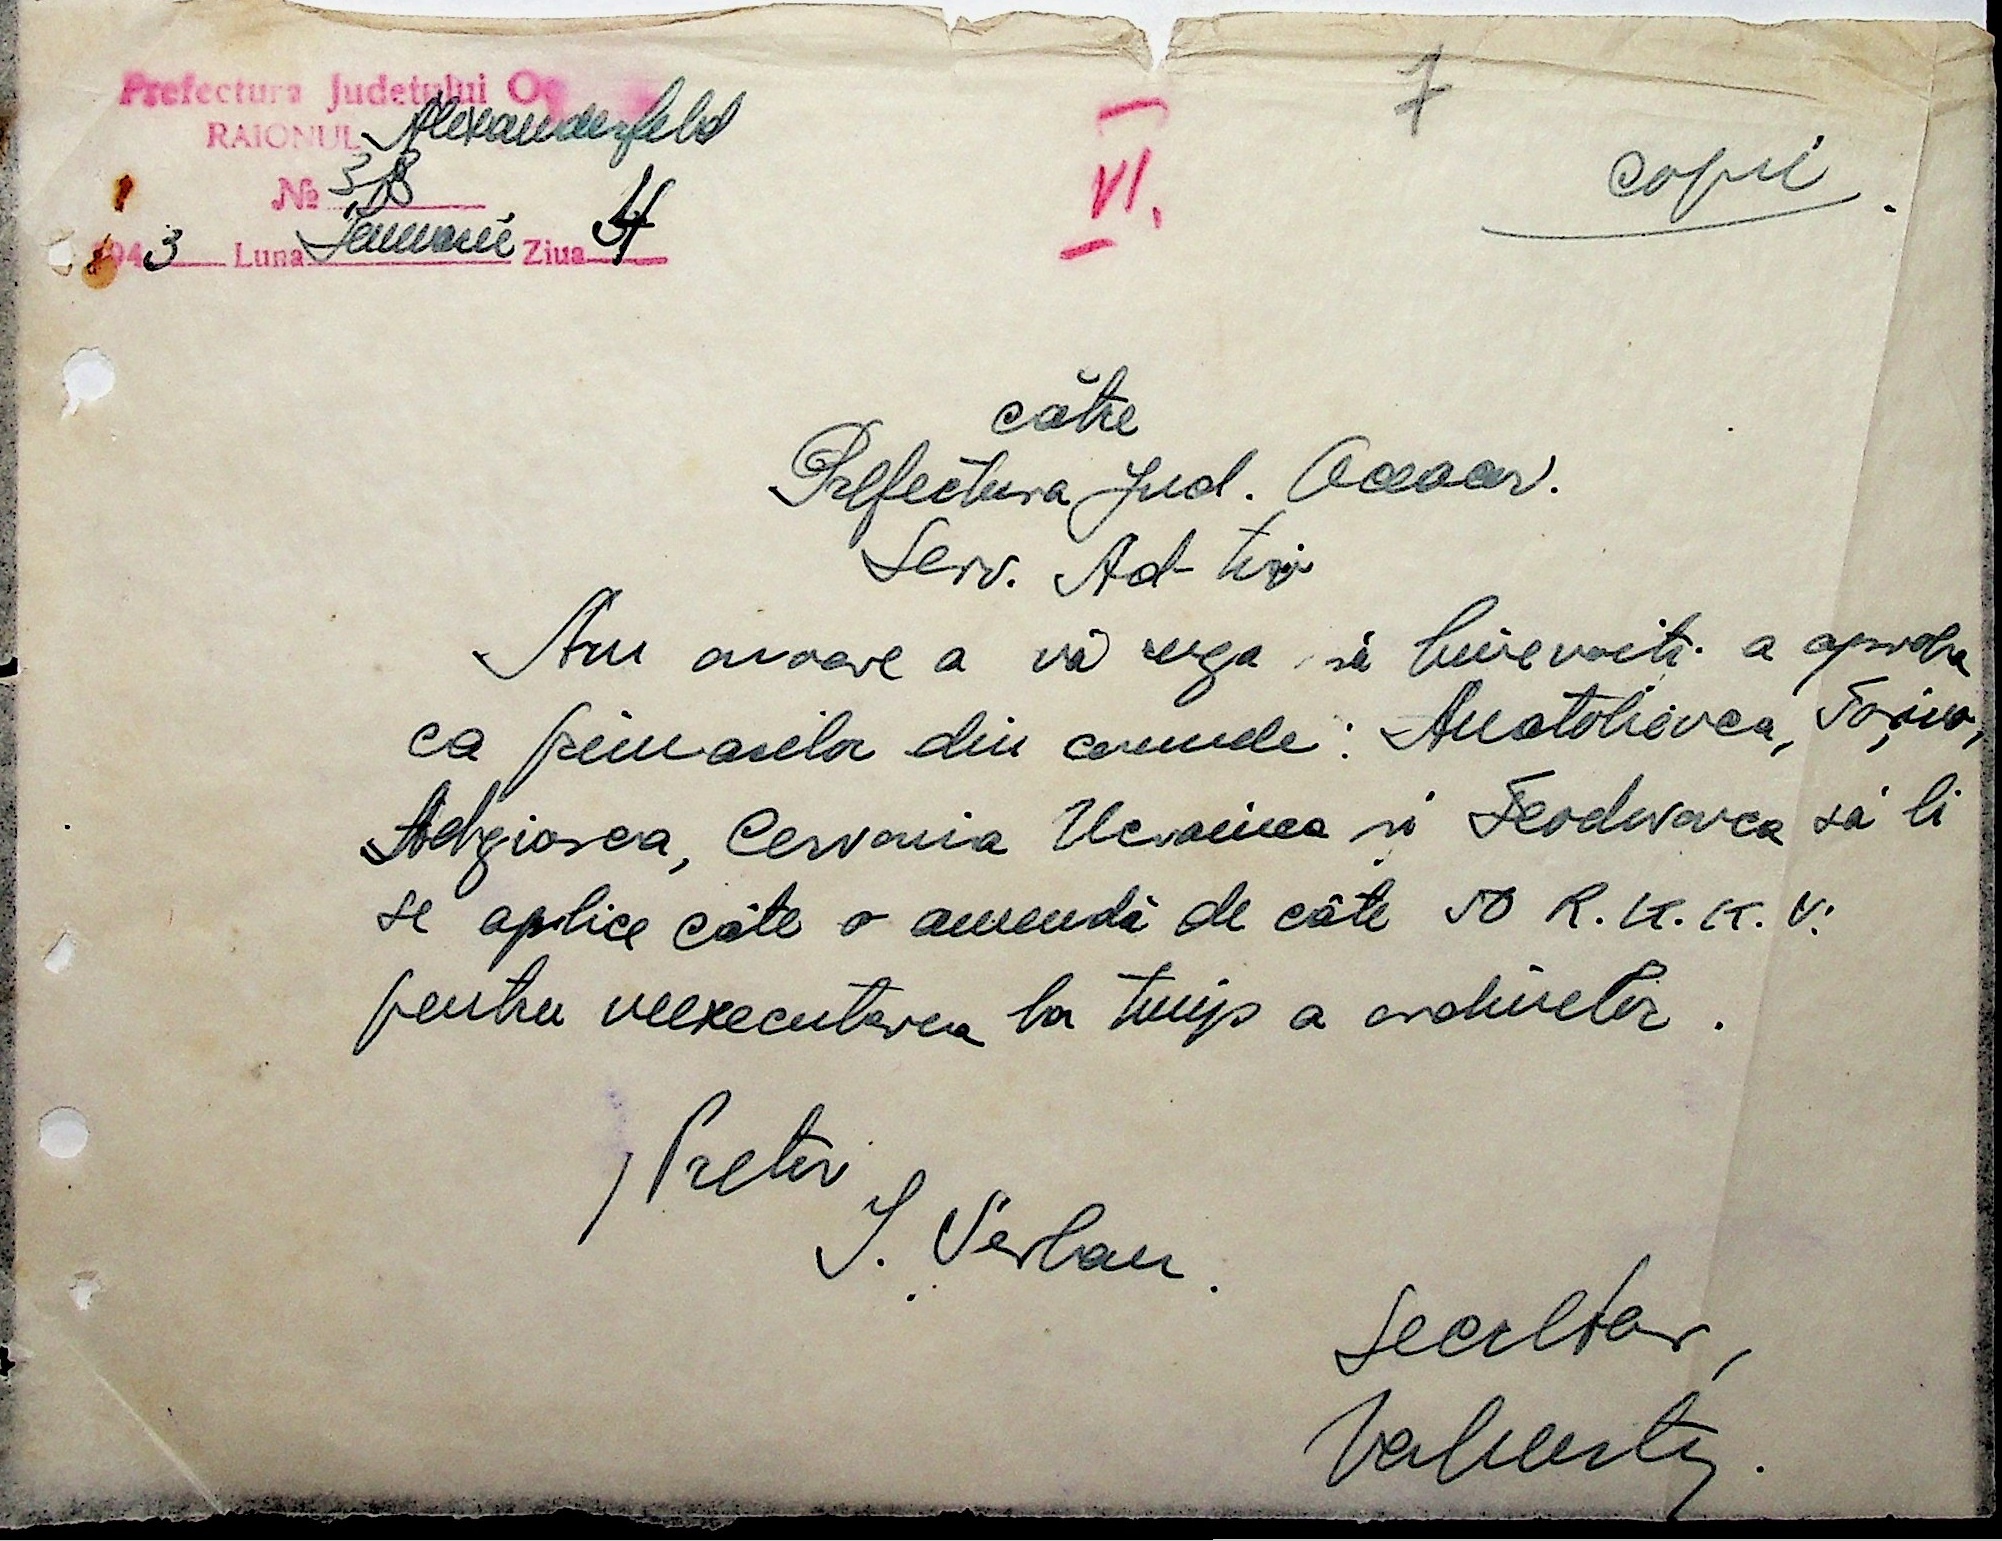 Prefectura Judetului Oc
RAIONUL Alexanderfeld
№ 38
1943 Luna Ianuarie Ziua 4
VI.
7
copie
către
Prefectura Jud. Oceacov.
Serv. Ad-tiv
Am onoare a vă ruga să binevoiti a aproba
ca primarilor din comunele: Anatolievca,
Adgiasca, Cervonia Ucrainca și Feodorovca să li
se aplice câte o amendă de câte 50 R.K.K.V.
pentru neexecutarea la timp a ordinelor.
Pretor
I. Serban.
Secretar,